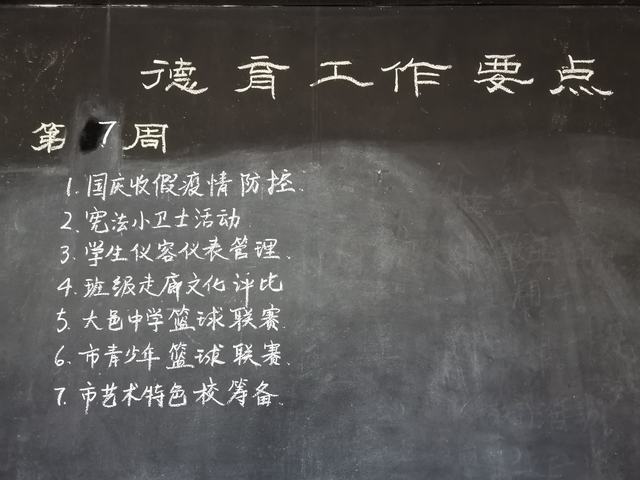 德育工作要点
第7周
1.国庆收假疫情防控.
2.宪法小卫士活动
3.学生仪容仪表管理.
4.班级走廊文化评比
5.大邑中学篮球联赛.
6.市青少年篮球联赛.
7.市艺术特色校筹备.